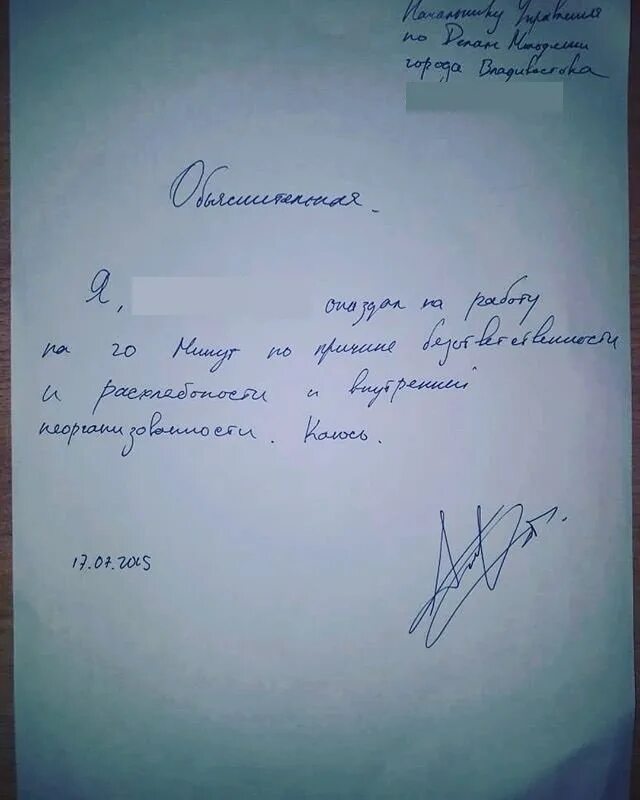 Начальнику Управления
по Делам Молодёжи
города Владивостока
Объяснительная.
Я, опаздал на работу
на 20 минут по причине безответственности
и расхлебоности и внутренней
неорганизованности. Каюсь.
17.07.2015